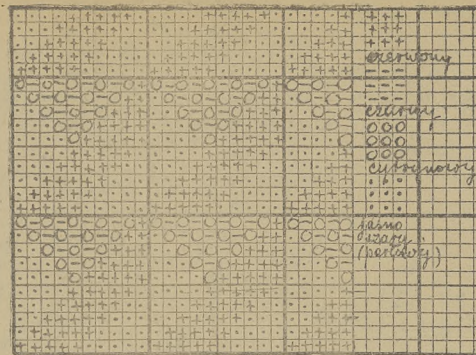 czerwony
czarny
cytrynowy
jasno
szary
(perłowy)